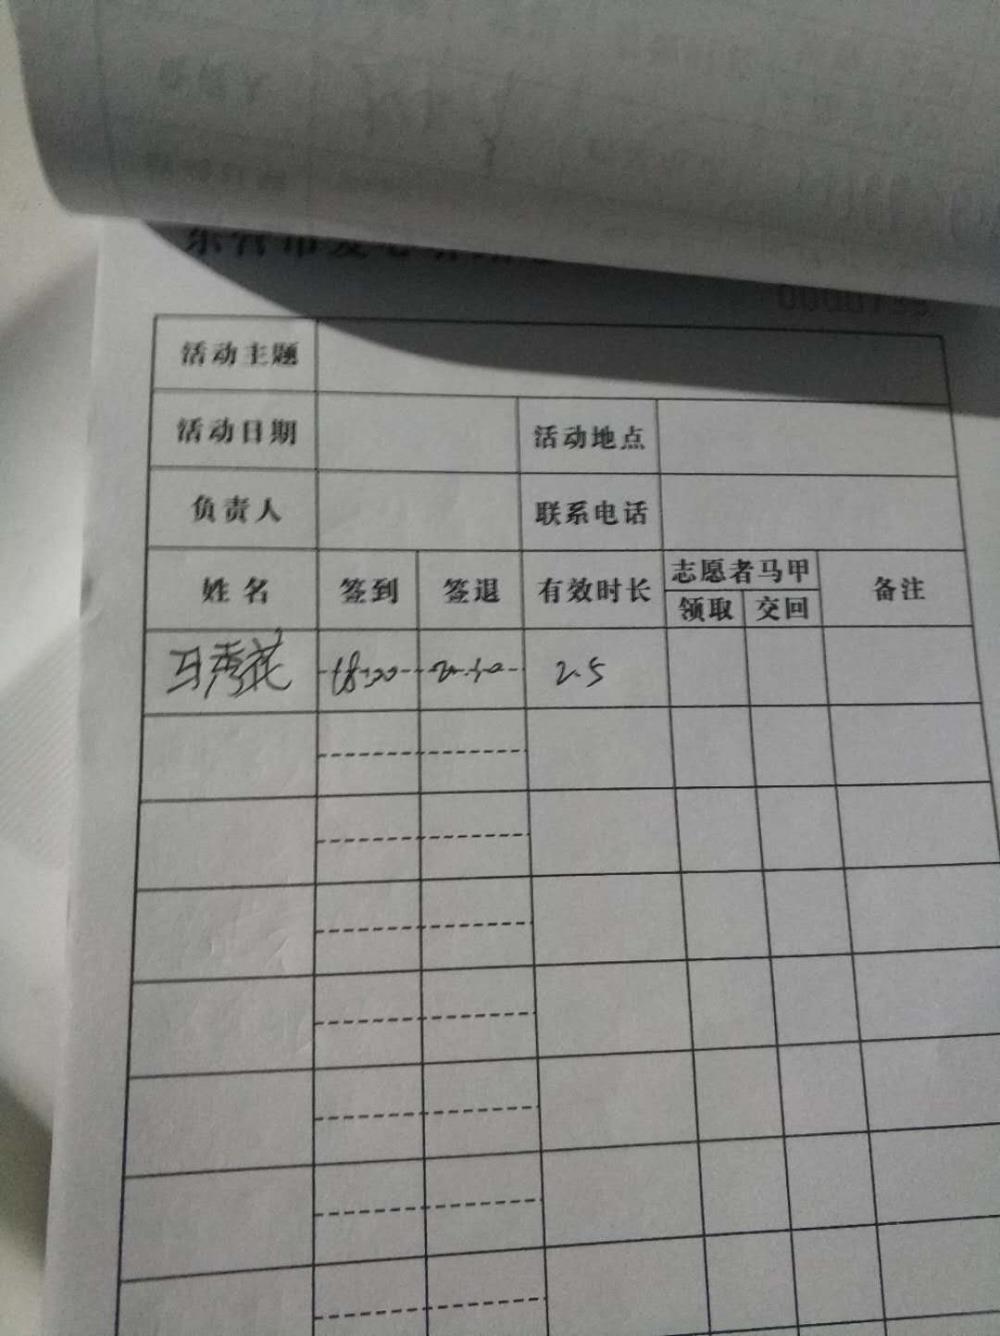 活动主题
活动日期 活动地点
负责人 联系电话
姓名 签到 签退 有效时长 志愿者马甲 备注
领取 交回
马秀花 18:00 20:30 2.5